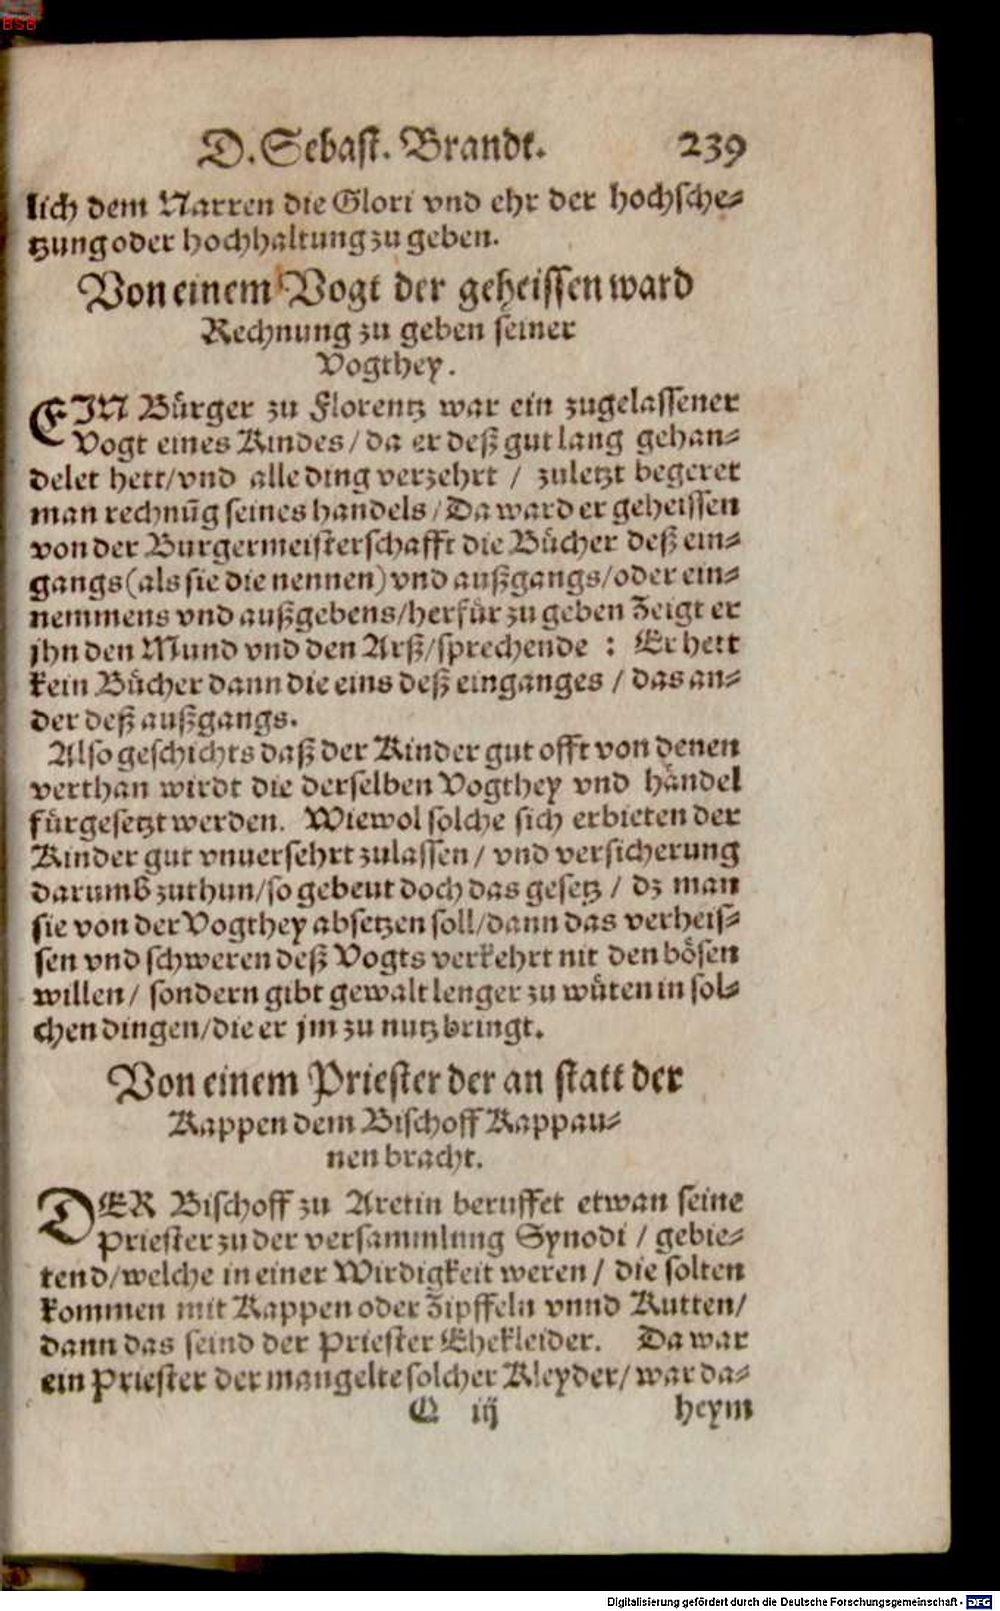 BSB
D. Sebast. Brandt. 239
lich dem Narren die Glori vnd ehr der hochsche-
tzung oder hochhaltung zu geben.
Von einem Vogt der geheissen ward
Rechnung zu geben seiner
Vogthey.
EIN Bürger zu Florentz war ein zugelassener
Vogt eines Kindes / da er deß gut lang gehan-
delet hett / vnd alle ding verzehrt / zuletzt begeret
man rechnūg seines handels / Da ward er geheissen
von der Burgermeisterschafft die Bücher deß ein-
gangs (als sie die nennen) vnd außgangs / oder ein-
nemmens vnd außgebens / herfür zu geben Zeigt er
jhn den Mund vnd den Arß / sprechende : Er hett
kein Bücher dann die eins deß einganges / das an-
der deß außgangs.
Also geschichts daß der Kinder gut offt von denen
verthan wirdt die derselben Vogthey vnd händel
fürgesetzt werden. Wiewol solche sich erbieten der
Kinder gut vnuersehrt zulassen / vnd versicherung
darumb zuthun / so gebeut doch das gesetz / dz man
sie von der Vogthey absetzen soll / dann das verheis-
sen vnd schweren deß Vogts verkehrt nit den bösen
willen / sondern gibt gewalt lenger zu wüten in sol-
chen dingen / die er jm zu nutz bringt.
Von einem Priester der an statt der
Kappen dem Bischoff Kappau-
nen bracht.
DER Bischoff zu Aretin beruffet etwan seine
Priester zu der versammlung Synodi / gebie-
tend / welche in einer Wirdigkeit weren / die solten
kommen mit Kappen oder Zipffeln vnnd Kutten /
dann das seind der Priester Ehekleider. Da war
ein Priester der mangelte solcher Kleyder / war da-
Q iij heym
Digitalisierung gefördert durch die Deutsche Forschungsgemeinschaft - DFG